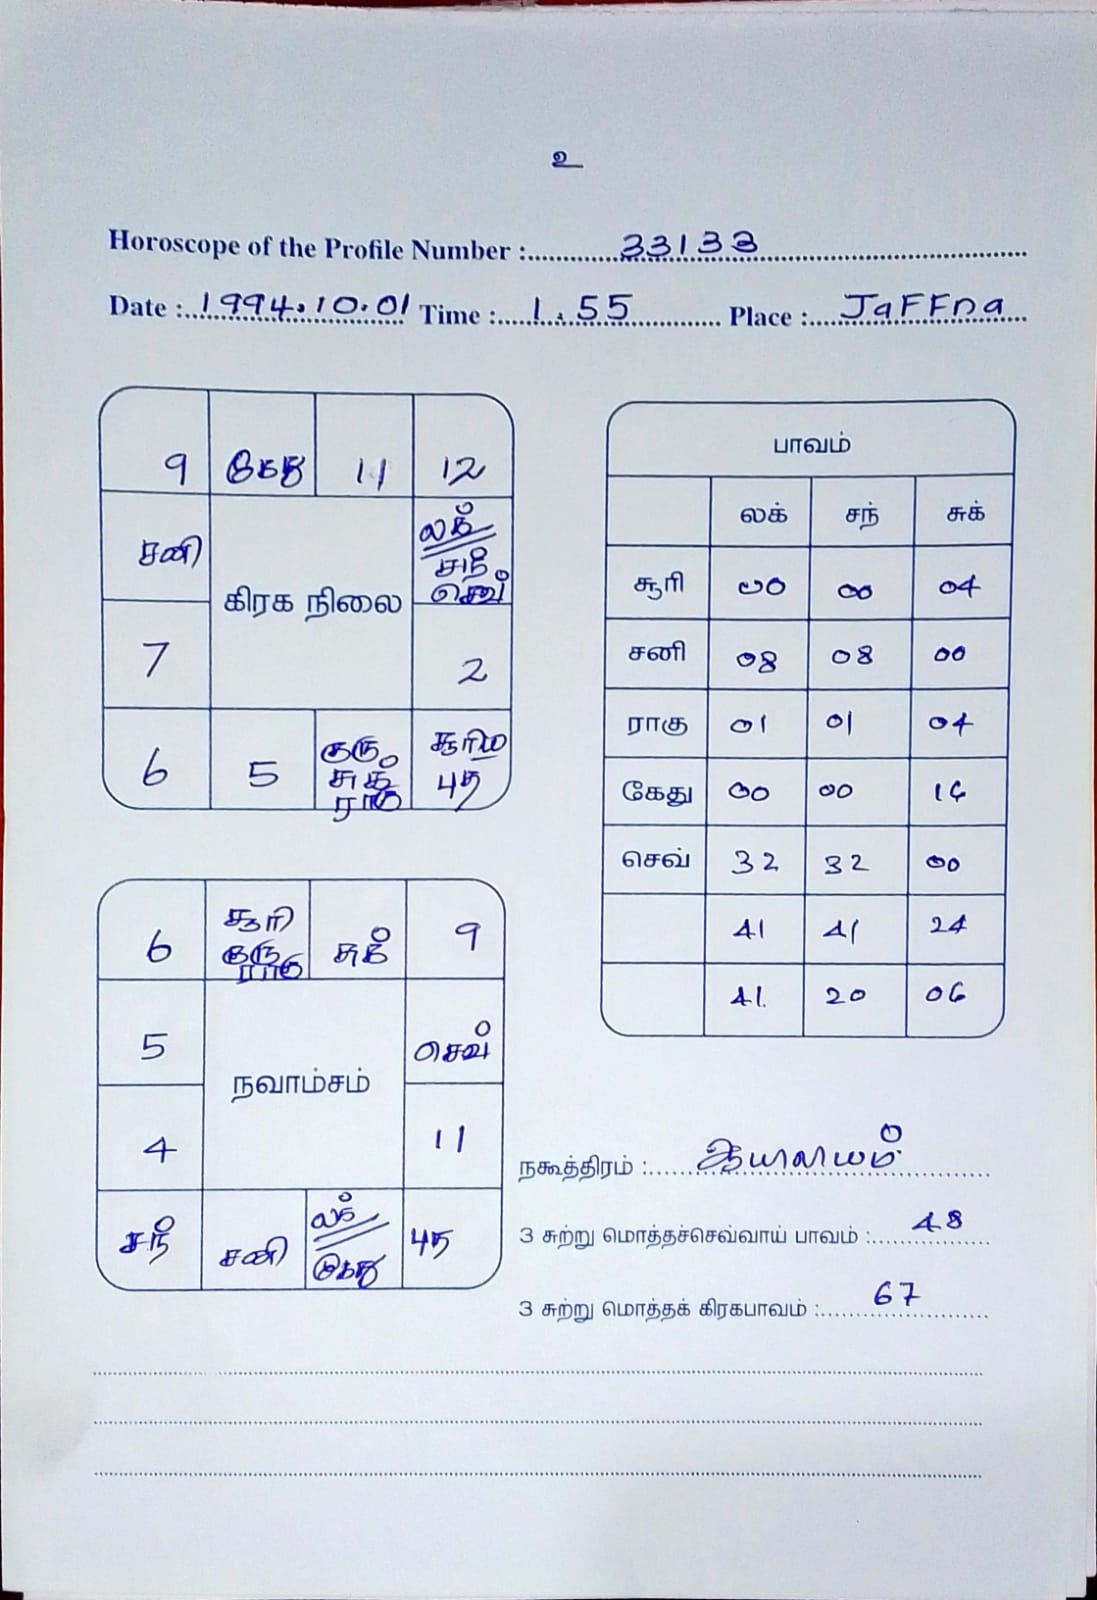 உ
Horoscope of the Profile Number : 33133
Date : 1994.10.01 Time : 1.55 Place : JaFFna
9 கேது 11 12
சனி
லக்
சந்
செவ்
கிரக நிலை
7
2
6 5
குரு
சுக்
ராகு
சூரிம
புத
பாவம்
லக் சந் சுக்
சூரி 00 00 04
சனி 08 08 00
ராகு 01 01 04
கேது 00 00 16
செவ் 32 32 00
41 41 24
41. 20 06
6
சூரி
குரு
ராகு
சுக்
9
5
செவ்
நவாம்சம்
4
11
சந்
சனி
லக்
கேது
புத
நகூத்திரம் : ஆயிலியம்
3 சுற்று மொத்தச்செவ்வாய் பாவம் : 48
3 சுற்று மொத்தக் கிரகபாவம் : 67